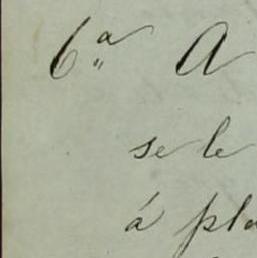 6ª A
se le
á pla